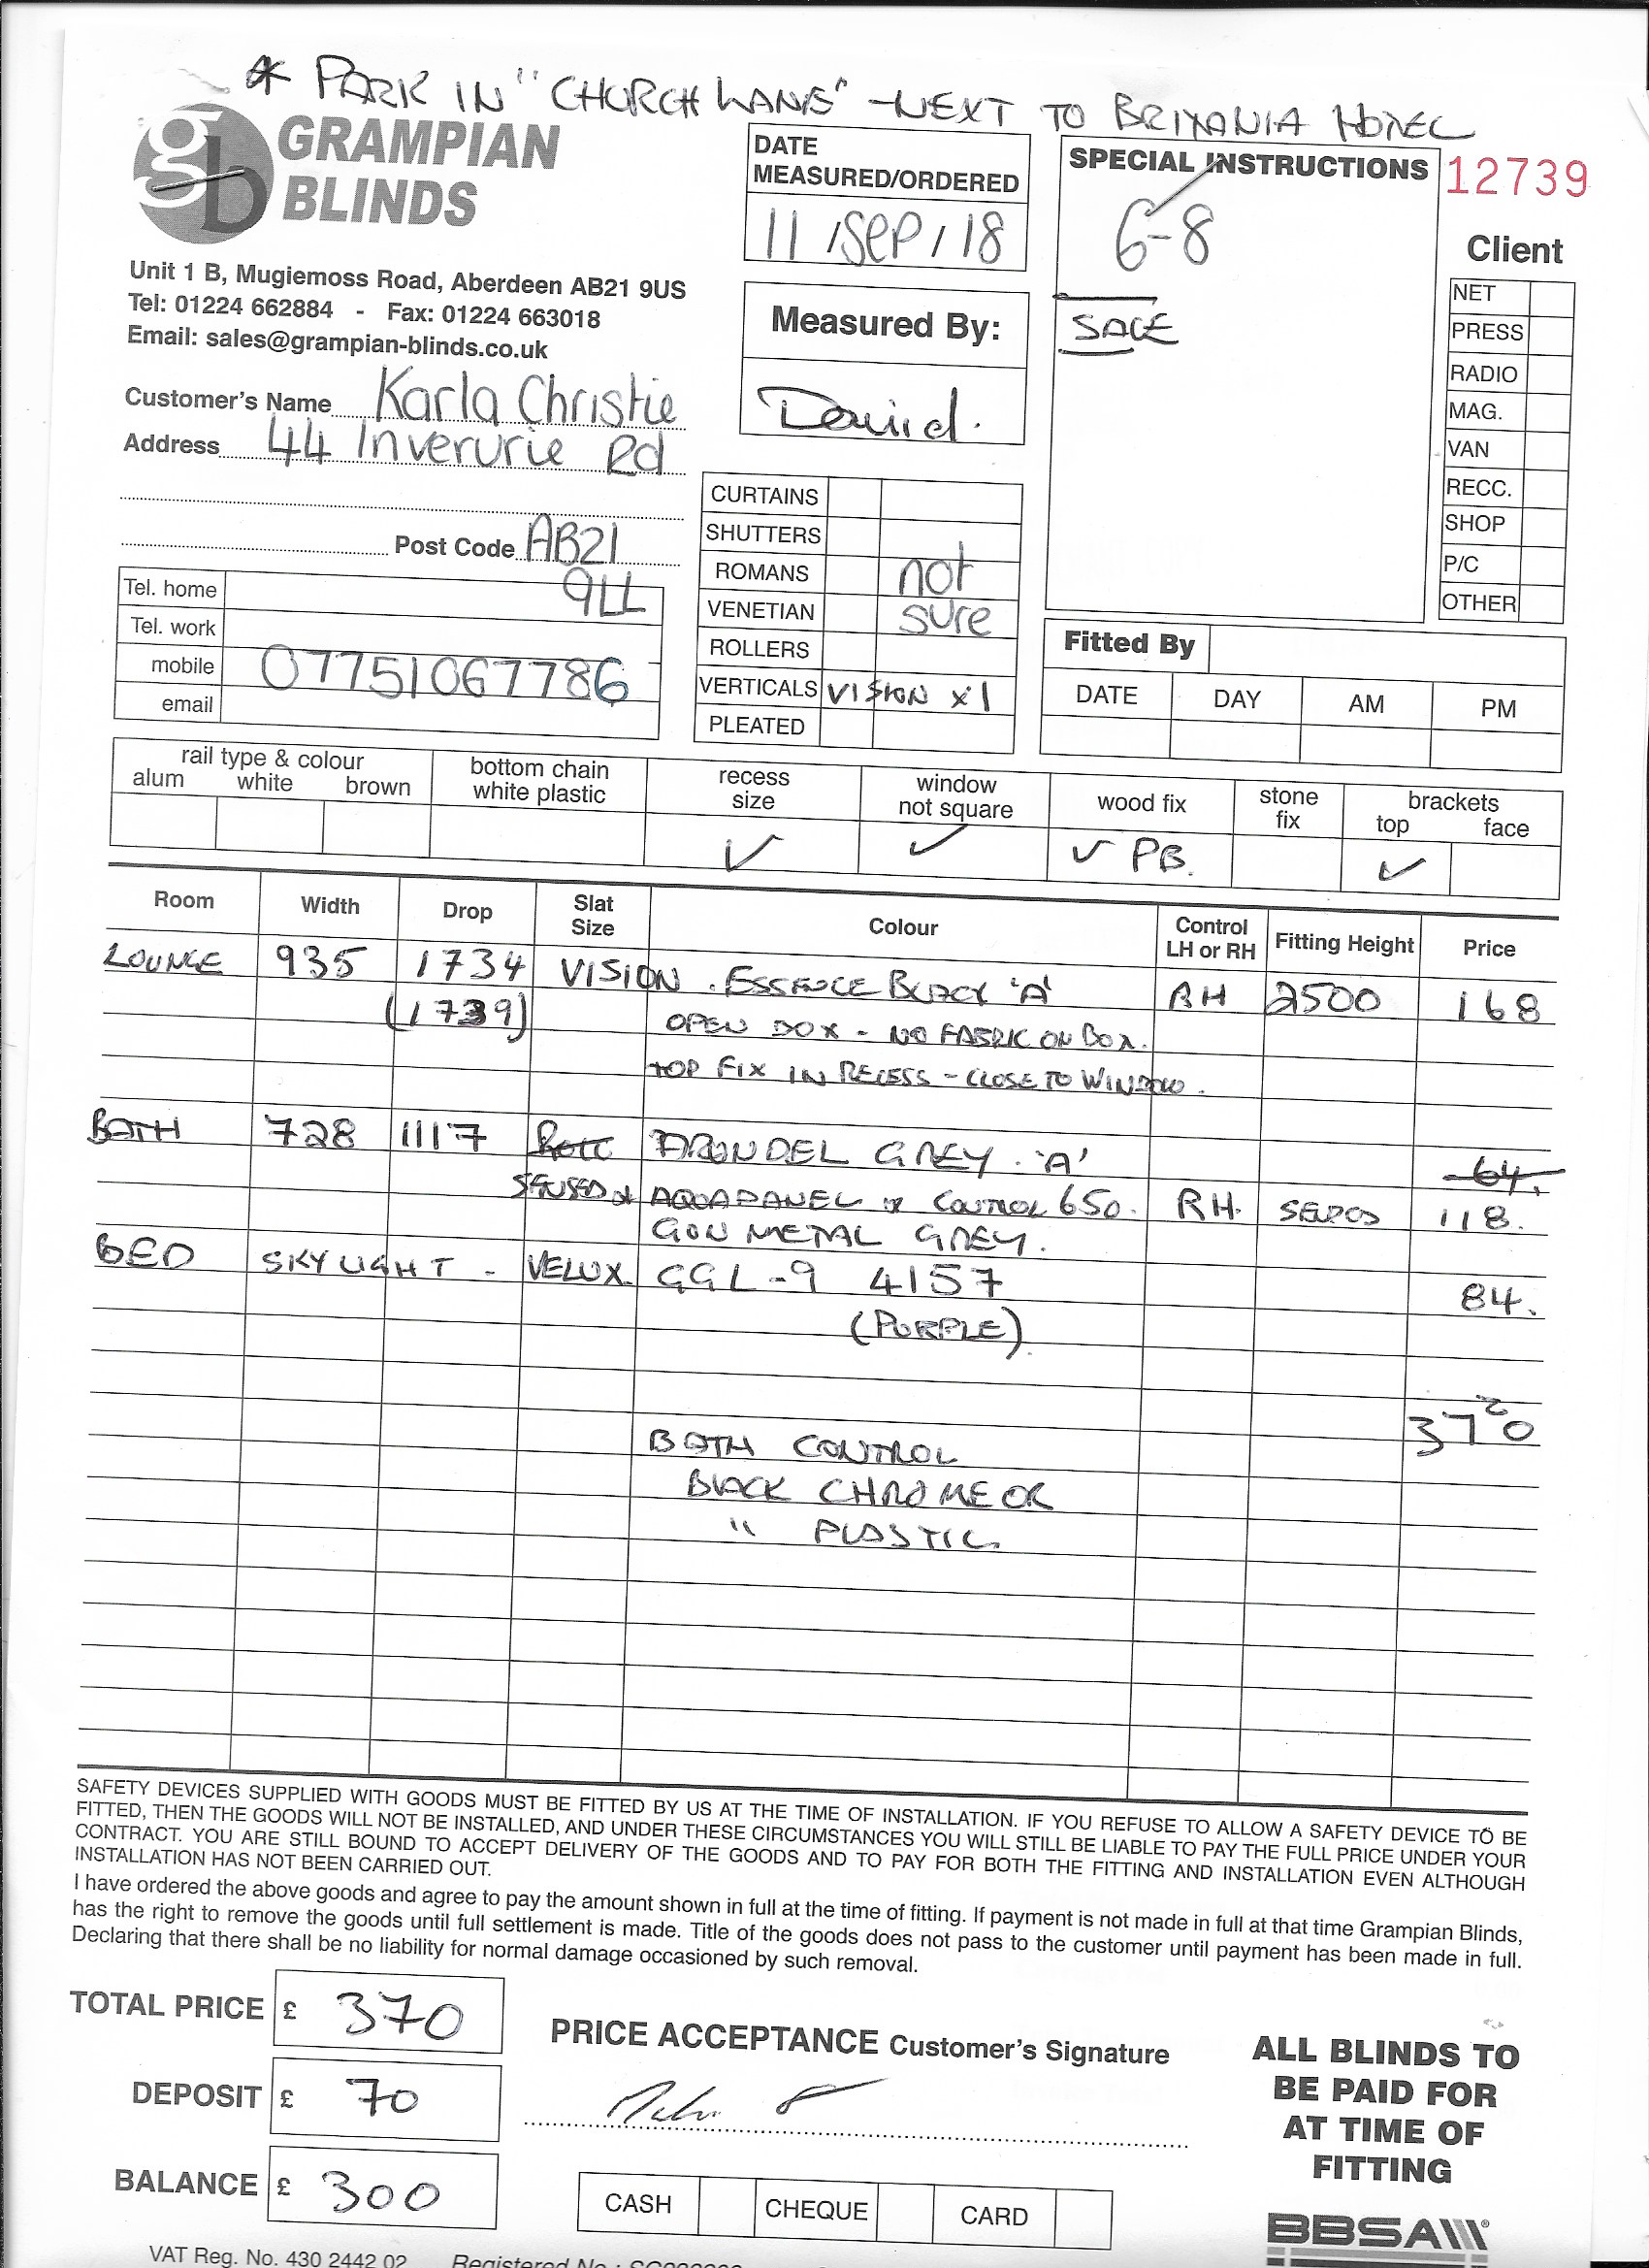 * PARK IN "CHURCH LANE" - NEXT TO BRITANIA HOTEL
gb
GRAMPIAN
BLINDS
Unit 1 B, Mugiemoss Road, Aberdeen AB21 9US
Tel: 01224 662884 - Fax: 01224 663018
Email: sales@grampian-blinds.co.uk
DATE
MEASURED/ORDERED
11 / SEP / 18
Measured By:
David.
SPECIAL INSTRUCTIONS
6-8
SALE
12739
Client
NET
PRESS
RADIO
MAG.
VAN
RECC.
SHOP
P/C
OTHER
Customer's Name Karla Christie
Address 44 Inverurie Rd
Post Code AB21
9LL
Tel. home
Tel. work
mobile 07751067786
email
CURTAINS
SHUTTERS
ROMANS not
VENETIAN sure
ROLLERS
VERTICALS VISION x 1
PLEATED
Fitted By
DATE DAY AM PM
rail type & colour
alum white brown
bottom chain
white plastic
recess
size
window
not square
wood fix
stone
fix
brackets
top face
✓ ✓ ✓ PB. ✓
Room Width Drop Slat Size Colour Control LH or RH Fitting Height Price
LOUNGE 935 1734 VISION . ESSENCE BLACK 'A' RH 2500 168
(1739) OPEN BOX - NO FABRIC ON BOX.
TOP FIX IN RECESS - CLOSE TO WINDOW.
BATH 728 1117 ARUNDEL GREY . 'A' 64.
AQUAPANEL CONTROL 650. RH. 118.
GUN METAL GREY.
BED SKYLIGHT - VELUX. GGL-9 4157 84.
(PURPLE)
370
BATH CONTROL
BLACK CHROME OR
" PLASTIC.
SAFETY DEVICES SUPPLIED WITH GOODS MUST BE FITTED BY US AT THE TIME OF INSTALLATION. IF YOU REFUSE TO ALLOW A SAFETY DEVICE TO BE
FITTED, THEN THE GOODS WILL NOT BE INSTALLED, AND UNDER THESE CIRCUMSTANCES YOU WILL STILL BE LIABLE TO PAY THE FULL PRICE UNDER YOUR
CONTRACT. YOU ARE STILL BOUND TO ACCEPT DELIVERY OF THE GOODS AND TO PAY FOR BOTH THE FITTING AND INSTALLATION EVEN ALTHOUGH
INSTALLATION HAS NOT BEEN CARRIED OUT.
I have ordered the above goods and agree to pay the amount shown in full at the time of fitting. If payment is not made in full at that time Grampian Blinds,
has the right to remove the goods until full settlement is made. Title of the goods does not pass to the customer until payment has been made in full.
Declaring that there shall be no liability for normal damage occasioned by such removal.
TOTAL PRICE £ 370
DEPOSIT £ 70
BALANCE £ 300
PRICE ACCEPTANCE Customer's Signature
CASH CHEQUE CARD
ALL BLINDS TO
BE PAID FOR
AT TIME OF
FITTING
BBSA
VAT Reg. No. 430 2442 02 Registered No.: